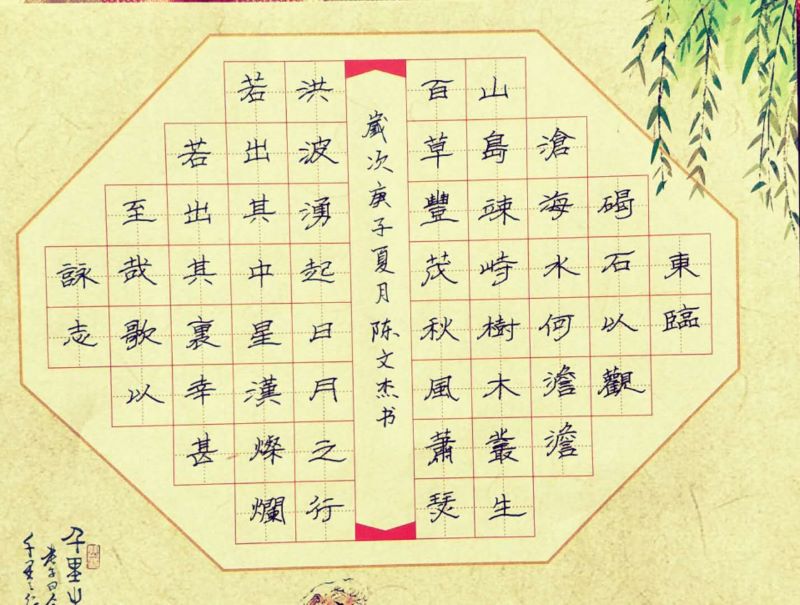 東臨
碣石以觀
滄海水何澹澹
山島竦峙樹木叢生
百草豐茂秋風蕭瑟
歲次庚子夏月陈文杰书
洪波湧起日月之行
若出其中星漢燦爛
若出其裏幸甚
至哉歌以
詠志
千里